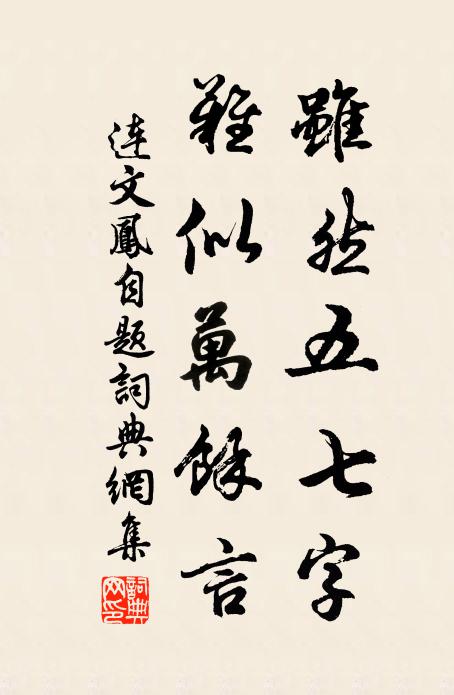 雖然五七字
難似萬餘言
連文鳳自題詞典網集